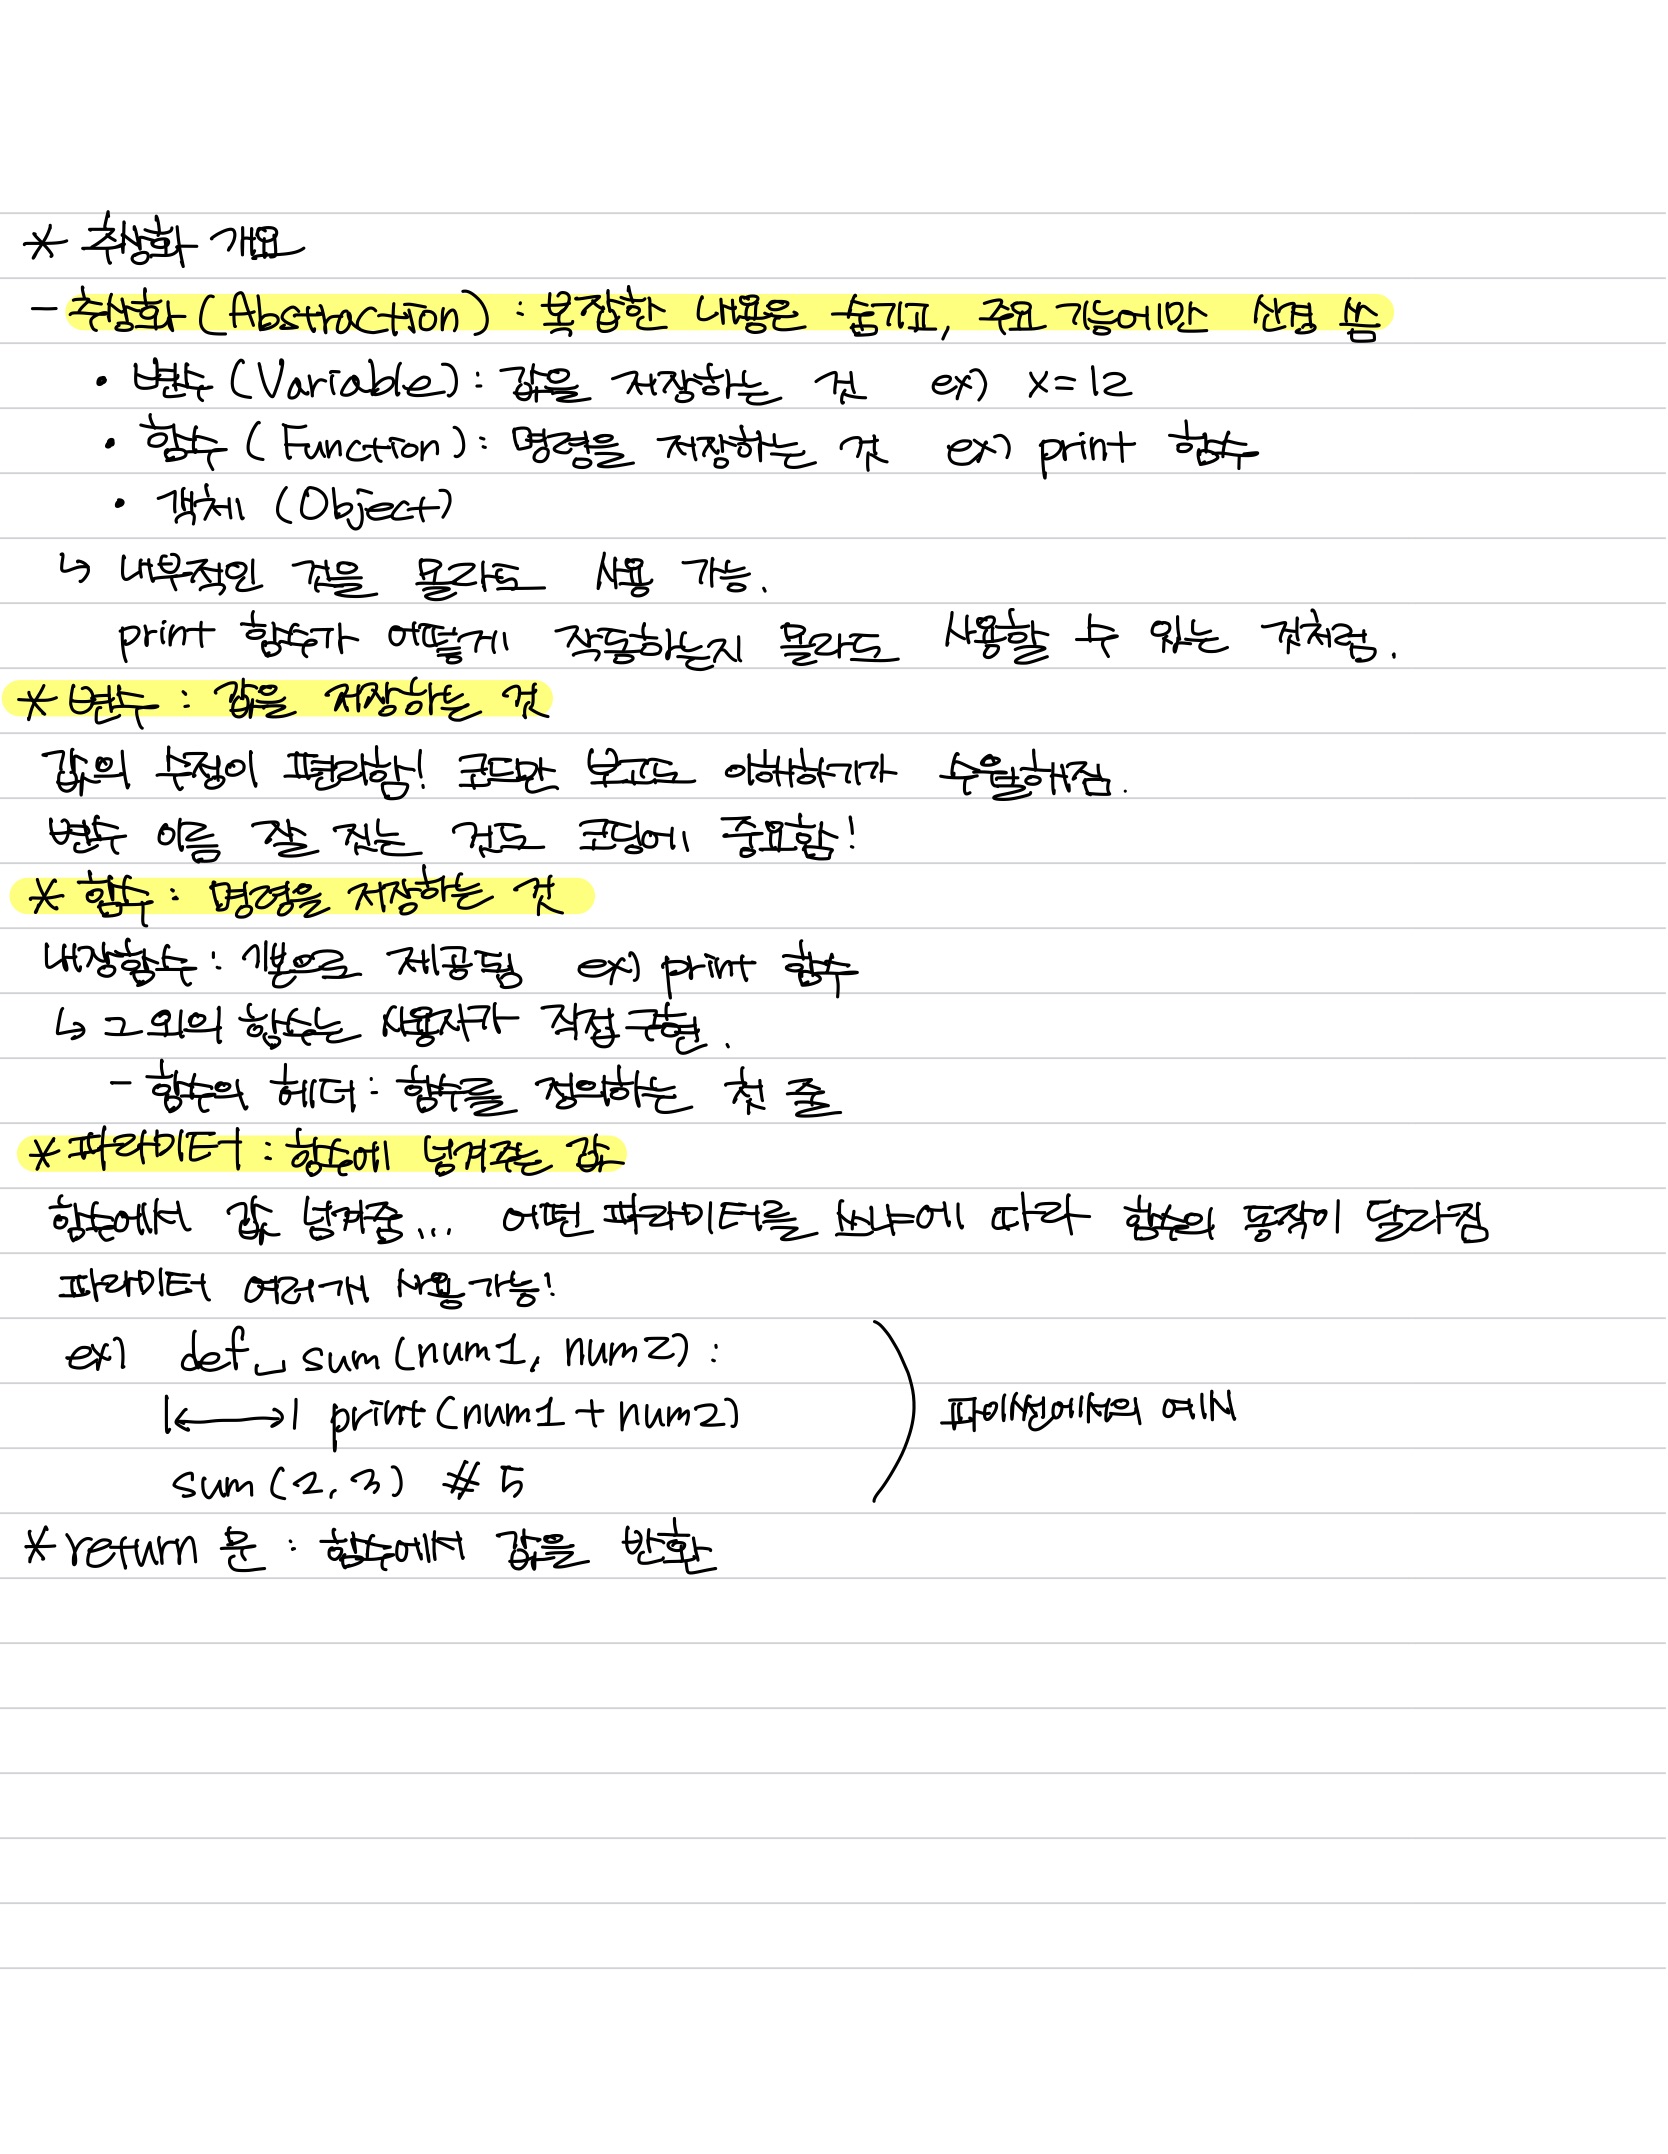 * 추상화 개요
- 추상화 (Abstraction) : 복잡한 내용은 숨기고, 주요 기능에만 신경 씀
• 변수 (Variable) : 값을 저장하는 것 ex) x=12
• 함수 (Function) : 명령을 저장하는 것 ex) print 함수
• 객체 (Object)
↳ 내부적인 것을 몰라도 사용 가능.
print 함수가 어떻게 작동하는지 몰라도 사용할 수 있는 것처럼.
* 변수 : 값을 저장하는 것
값의 수정이 편리함! 코드만 보고도 이해하기가 수월해짐.
변수 이름 잘 짓는 것도 코딩에 중요함!
* 함수 : 명령을 저장하는 것
내장함수 : 기본으로 제공됨 ex) print 함수
↳ 그 외의 함수는 사용자가 직접 구현.
- 함수의 헤더 : 함수를 정의하는 첫 줄
* 파라미터 : 함수에 넘겨주는 값
함수에서 값 넘겨줌... 어떤 파라미터를 쓰냐에 따라 함수의 동작이 달라짐
파라미터 여러개 사용가능!
ex) def␣sum(num1, num2) :
|↔| print(num1 + num2)
파이썬에서의 예시
sum(2, 3) # 5
* return 문 : 함수에서 값을 반환